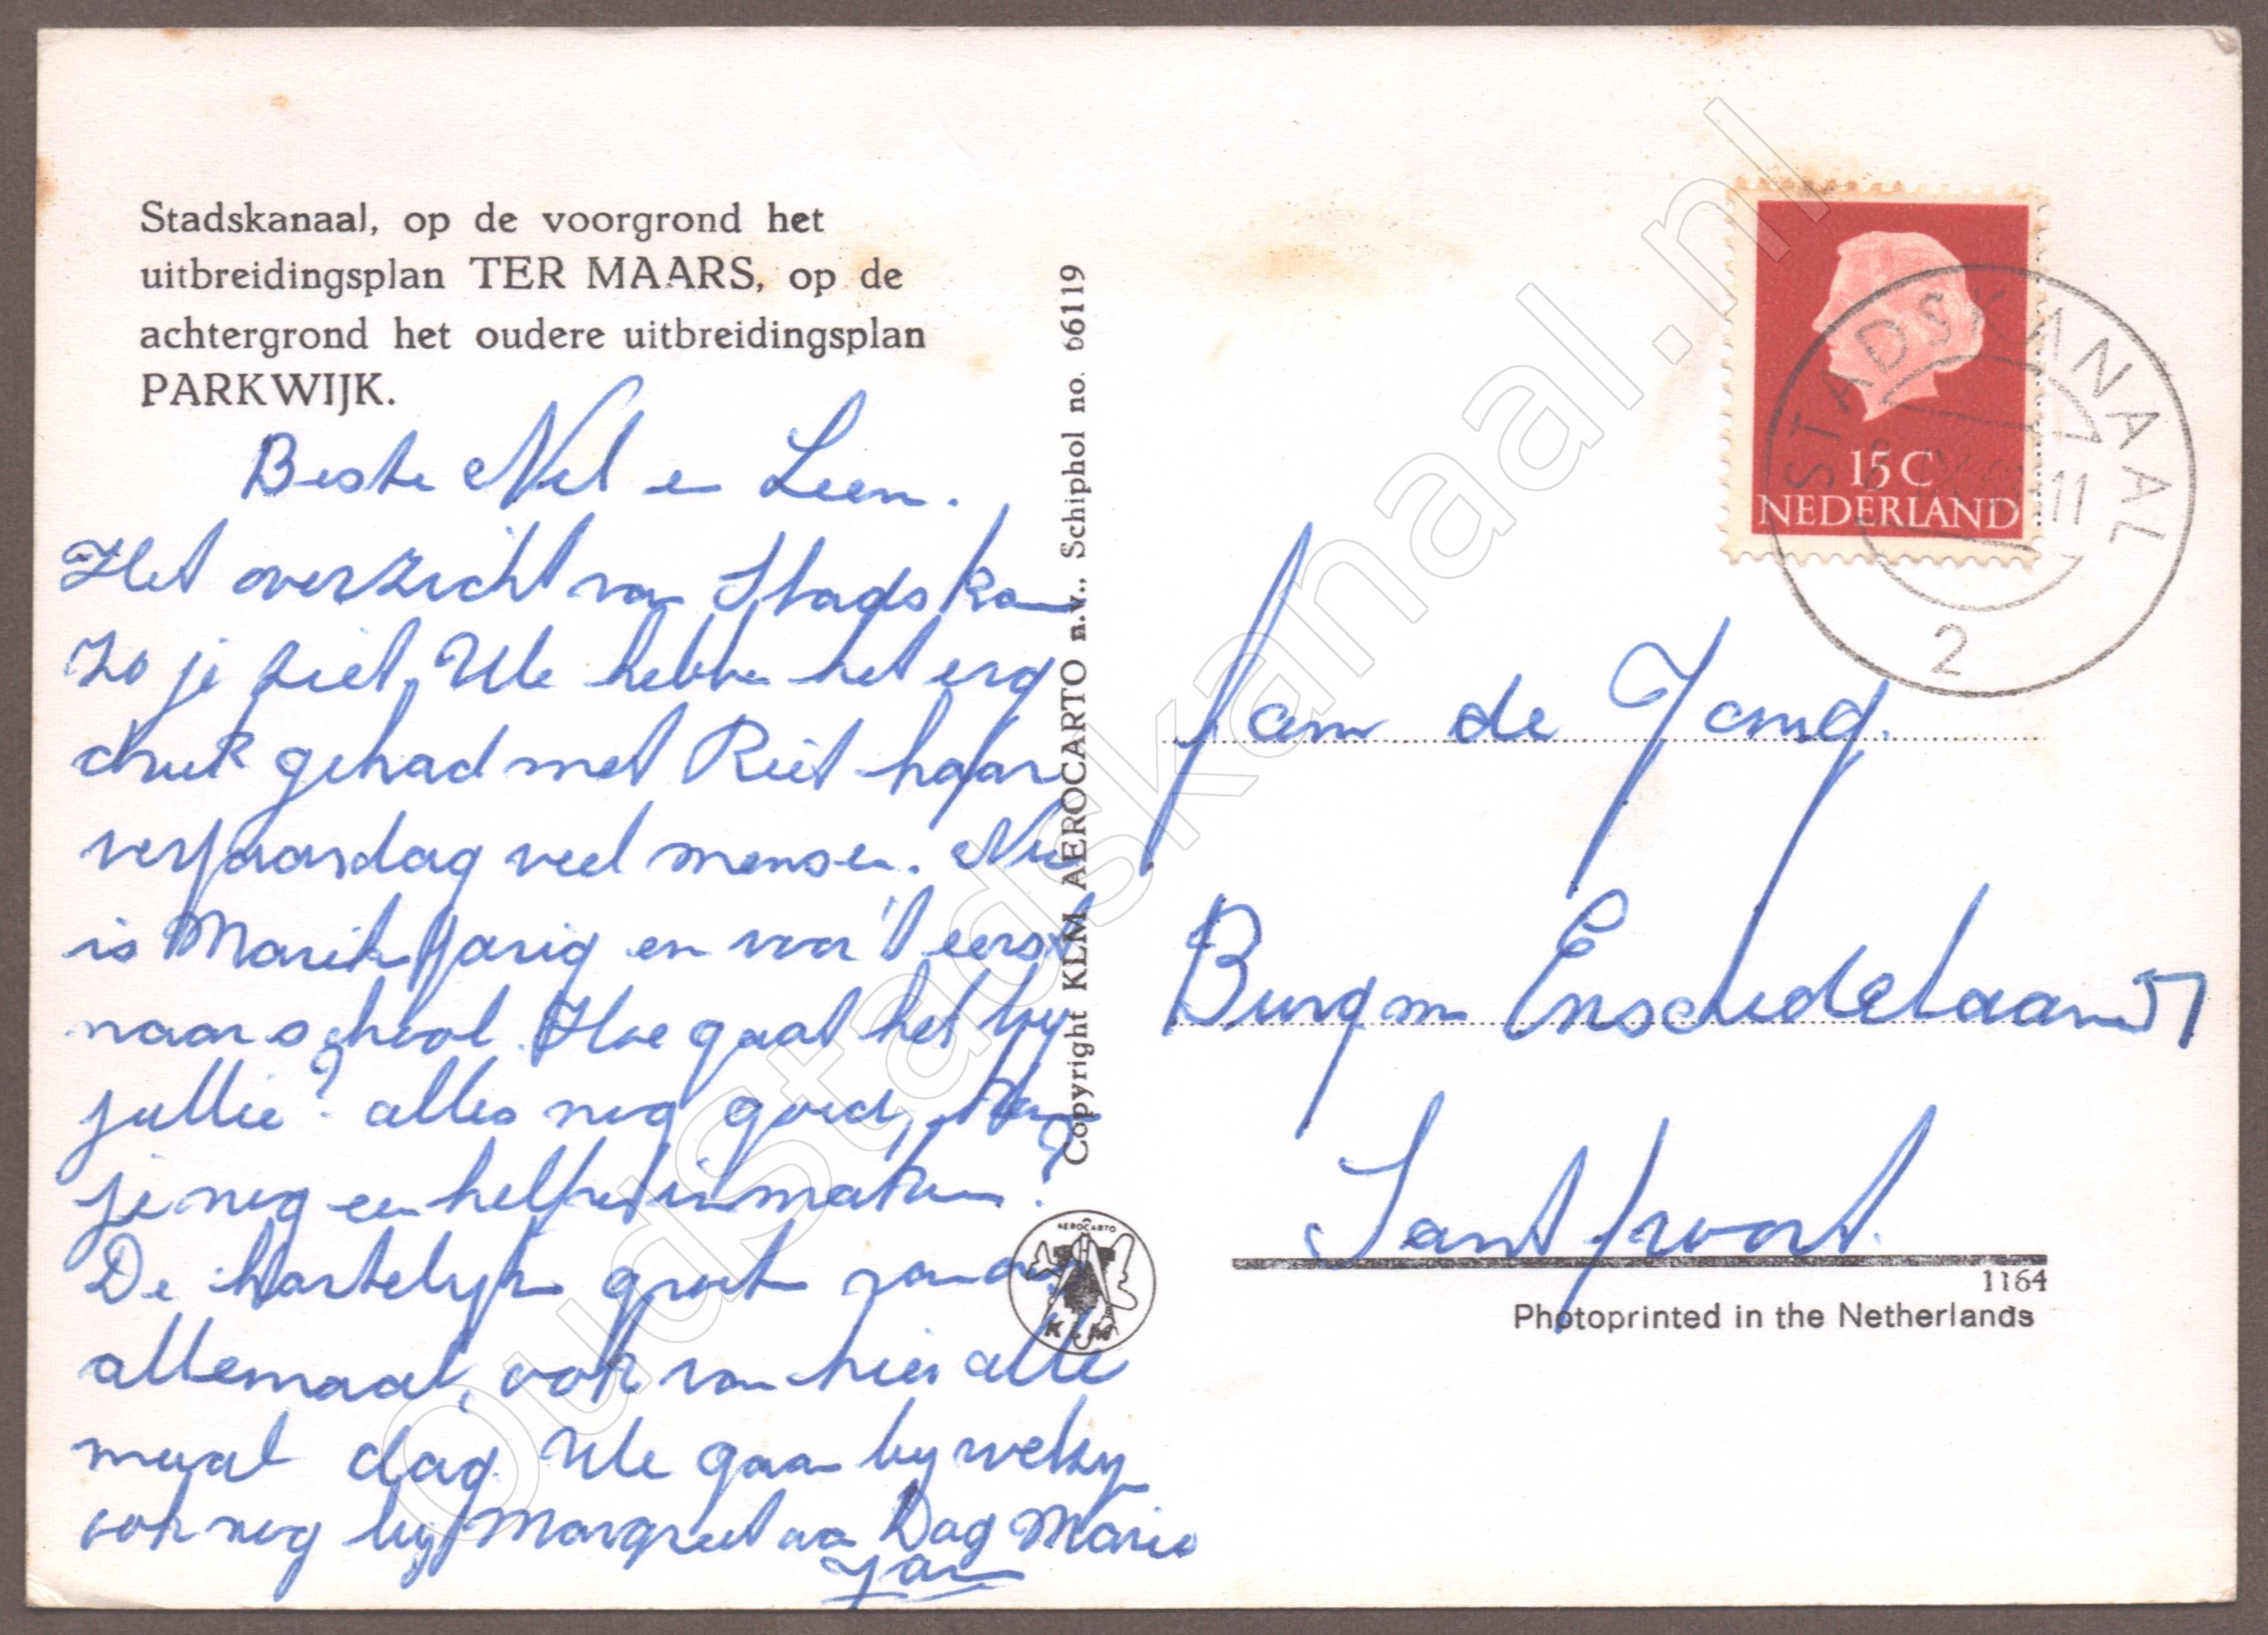 Stadskanaal, op de voorgrond het
uitbreidingsplan TER MAARS, op de
achtergrond het oudere uitbreidingsplan
PARKWIJK.
Beste Nel en Leen.
Het overzicht van Stadskan
Zo je ziet. We hebben het erg
druk gehad met Riet haar
verjaardag veel mensen. Nu
is Jarig en voor 't eerst
naar school. Hoe gaat het by
jullie? alles nog goed, Kan
je nog een maken?
De hartelyke groeten van
allemaal, ook van hier alle
maal dag. We gaan by welzyn
ook nog by Margreet aan Dag Marie
Jan
Copyright KLM AEROCARTO n.v., Schiphol no. 66119
AEROCARTO
KLM
15 C
NEDERLAND
STADSKANAAL
11
2
Fam de Jong.
Burgm Enschedelaan 57
Santpoort.
1164
Photoprinted in the Netherlands
oudStadskanaal.nl